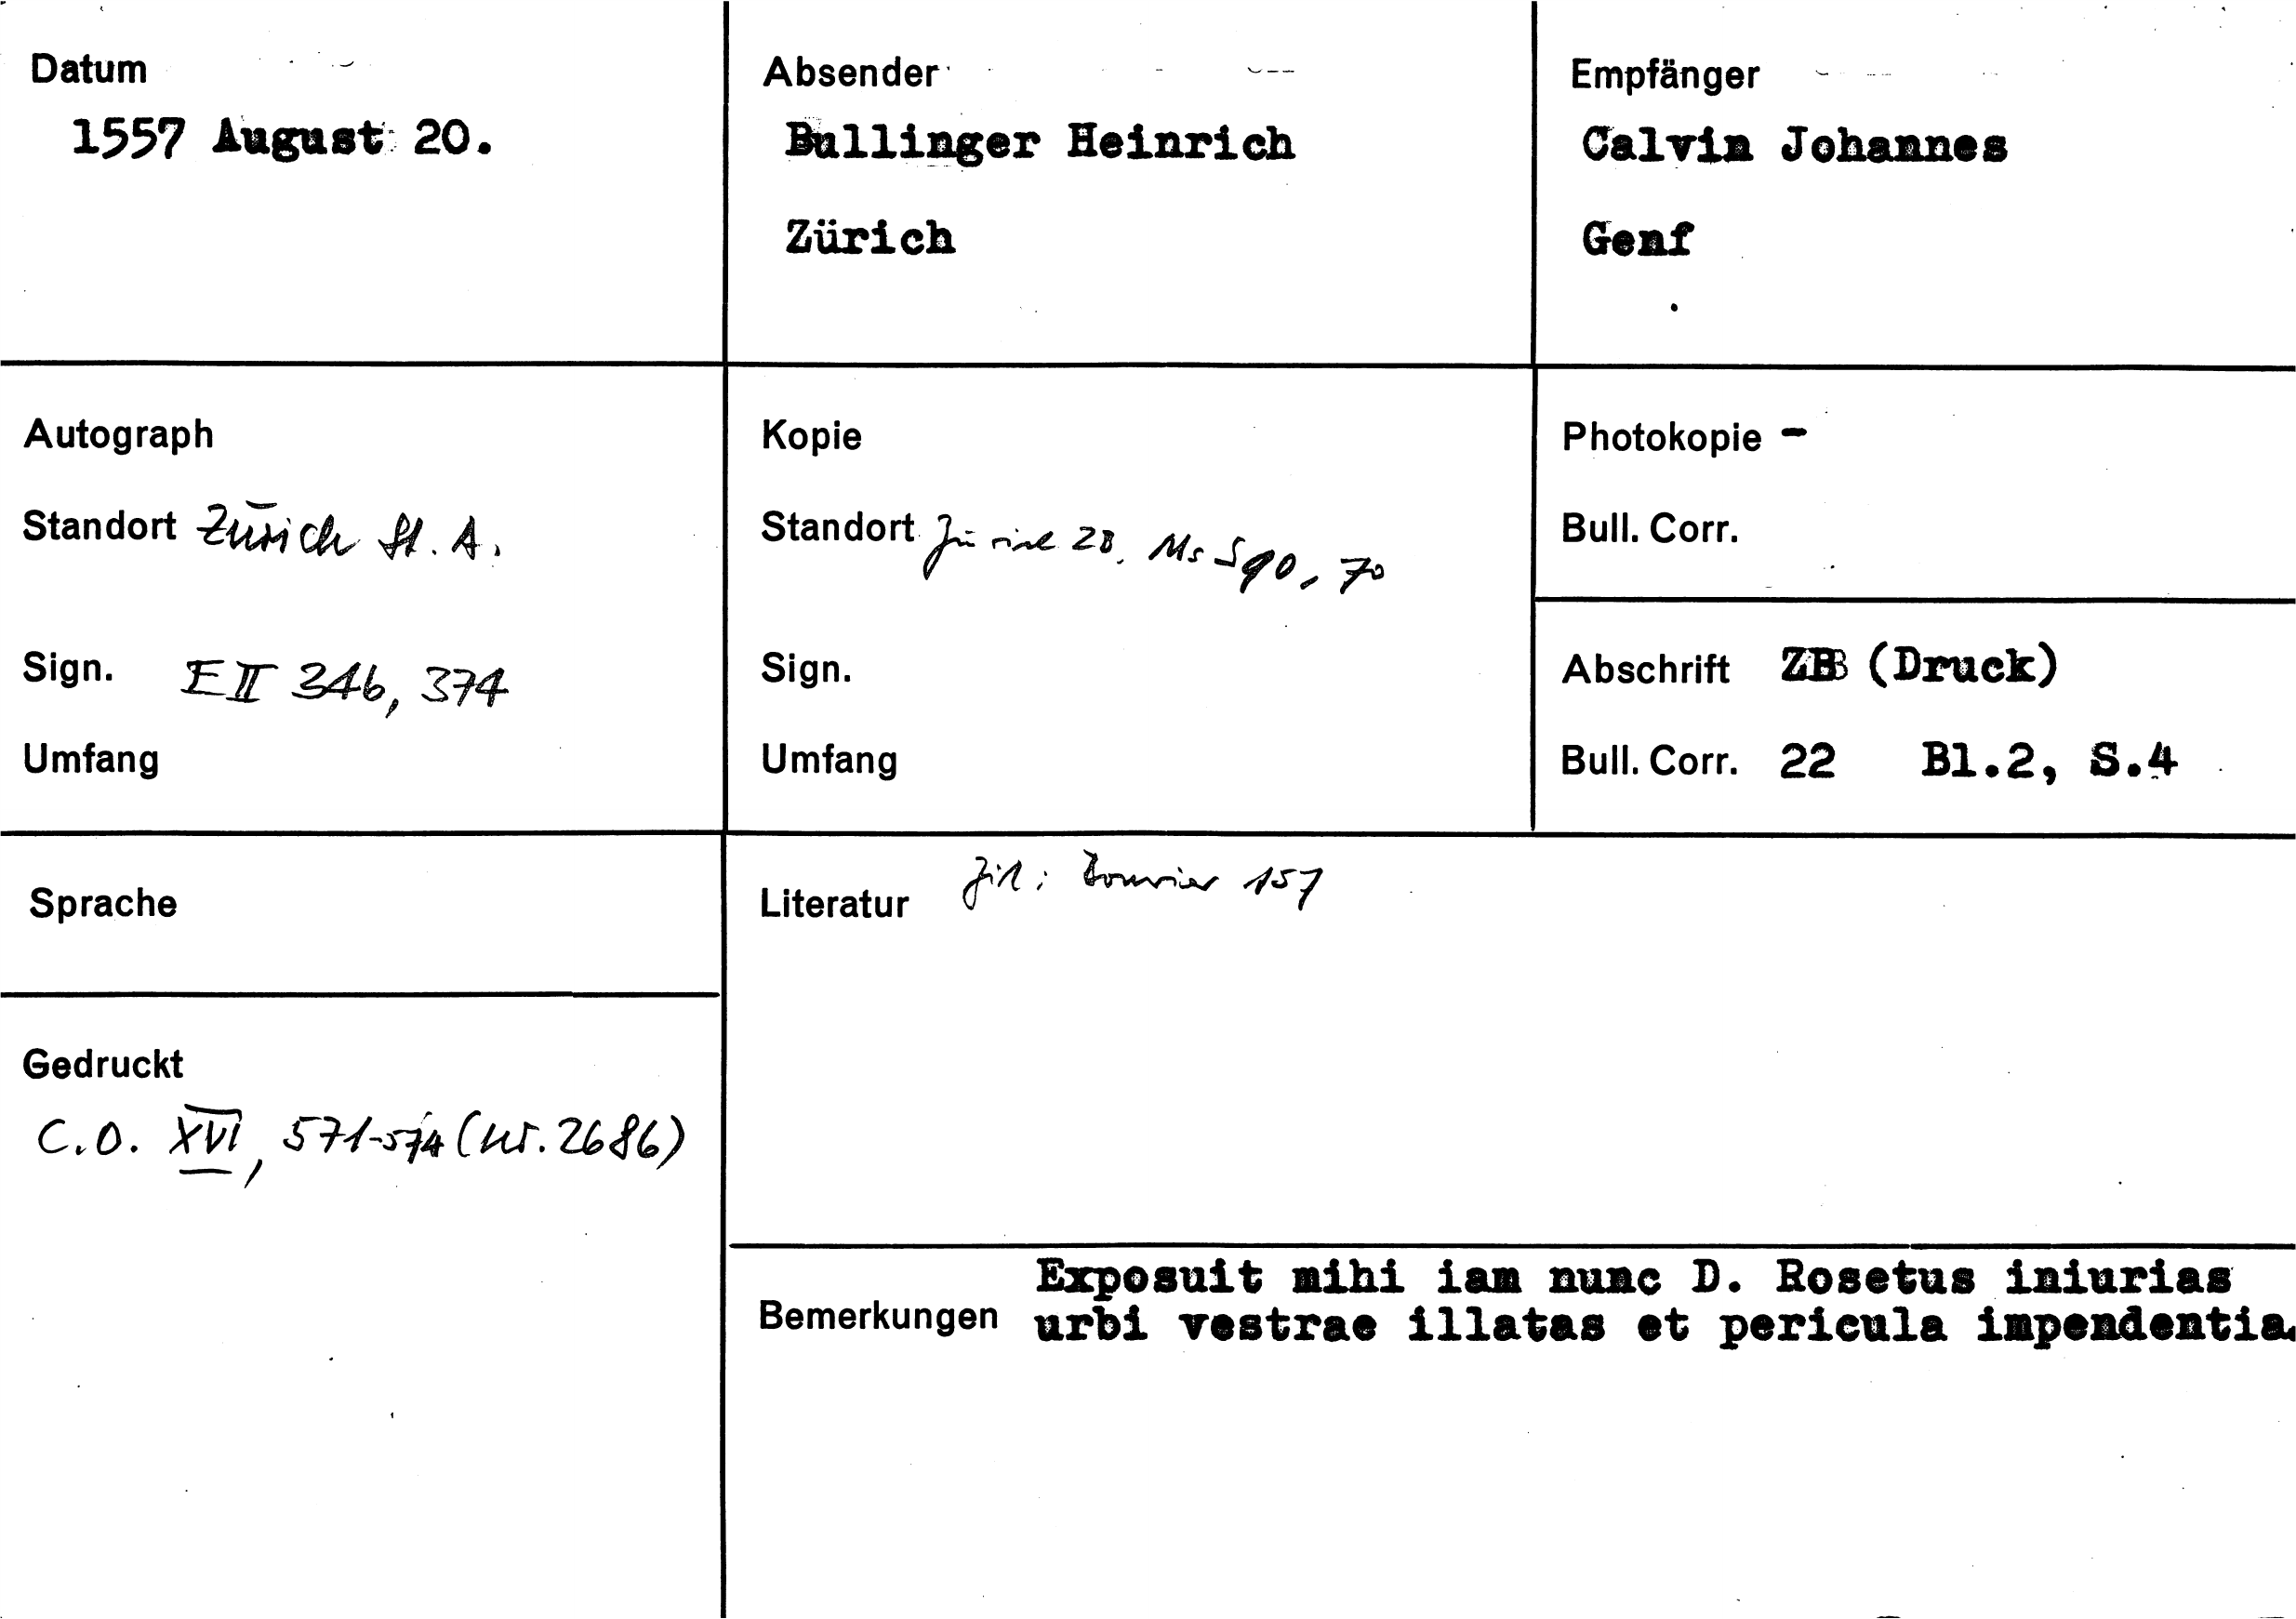 Datum
1557 August 20.
Absender
Bullinger Heinrich
Zürich
Empfänger
Calvin Johannes
Genf
Autograph
Standort Zürich St. A.
Sign. E II 346, 374
Umfang
Kopie
Standort Zürich ZB, Ms S 90, 70
Sign.
Umfang
Photokopie -
Bull. Corr.
Abschrift ZB (Druck)
Bull. Corr. 22 Bl.2, S.4
Sprache
Gedruckt
C.O. XVI, 571-574 (Nr. 2686)
Literatur Zit: Bouvier 157
Bemerkungen Exposuit mihi iam nunc D. Rosetus iniurias
urbi vestrae illatas et pericula impendentia.